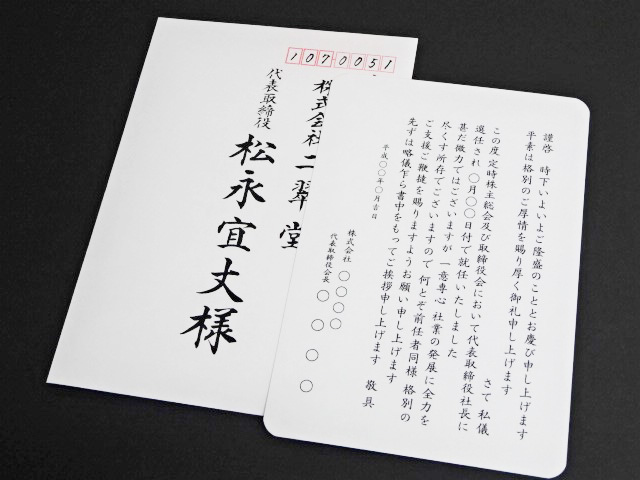 1070051
株式会社二翠堂
代表取締役
松永宜丈様
謹啓 時下いよいよご隆盛のこととお慶び申し上げます
平素は格別のご厚情を賜り厚く御礼申し上げます
さて 私儀
この度 定時株主総会及び取締役会において代表取締役社長に
選任され 〇月〇〇日付で就任いたしました
甚だ微力ではございますが 一意専心 社業の発展に全力を
尽くす所存でございますので 何とぞ前任者同様 格別の
ご支援ご鞭撻を賜りますようお願い申し上げます
先ずは略儀乍ら書中をもってご挨拶申し上げます
敬具
平成〇〇年〇月吉日
株式会社 〇〇〇〇
代表取締役会長 〇〇〇〇